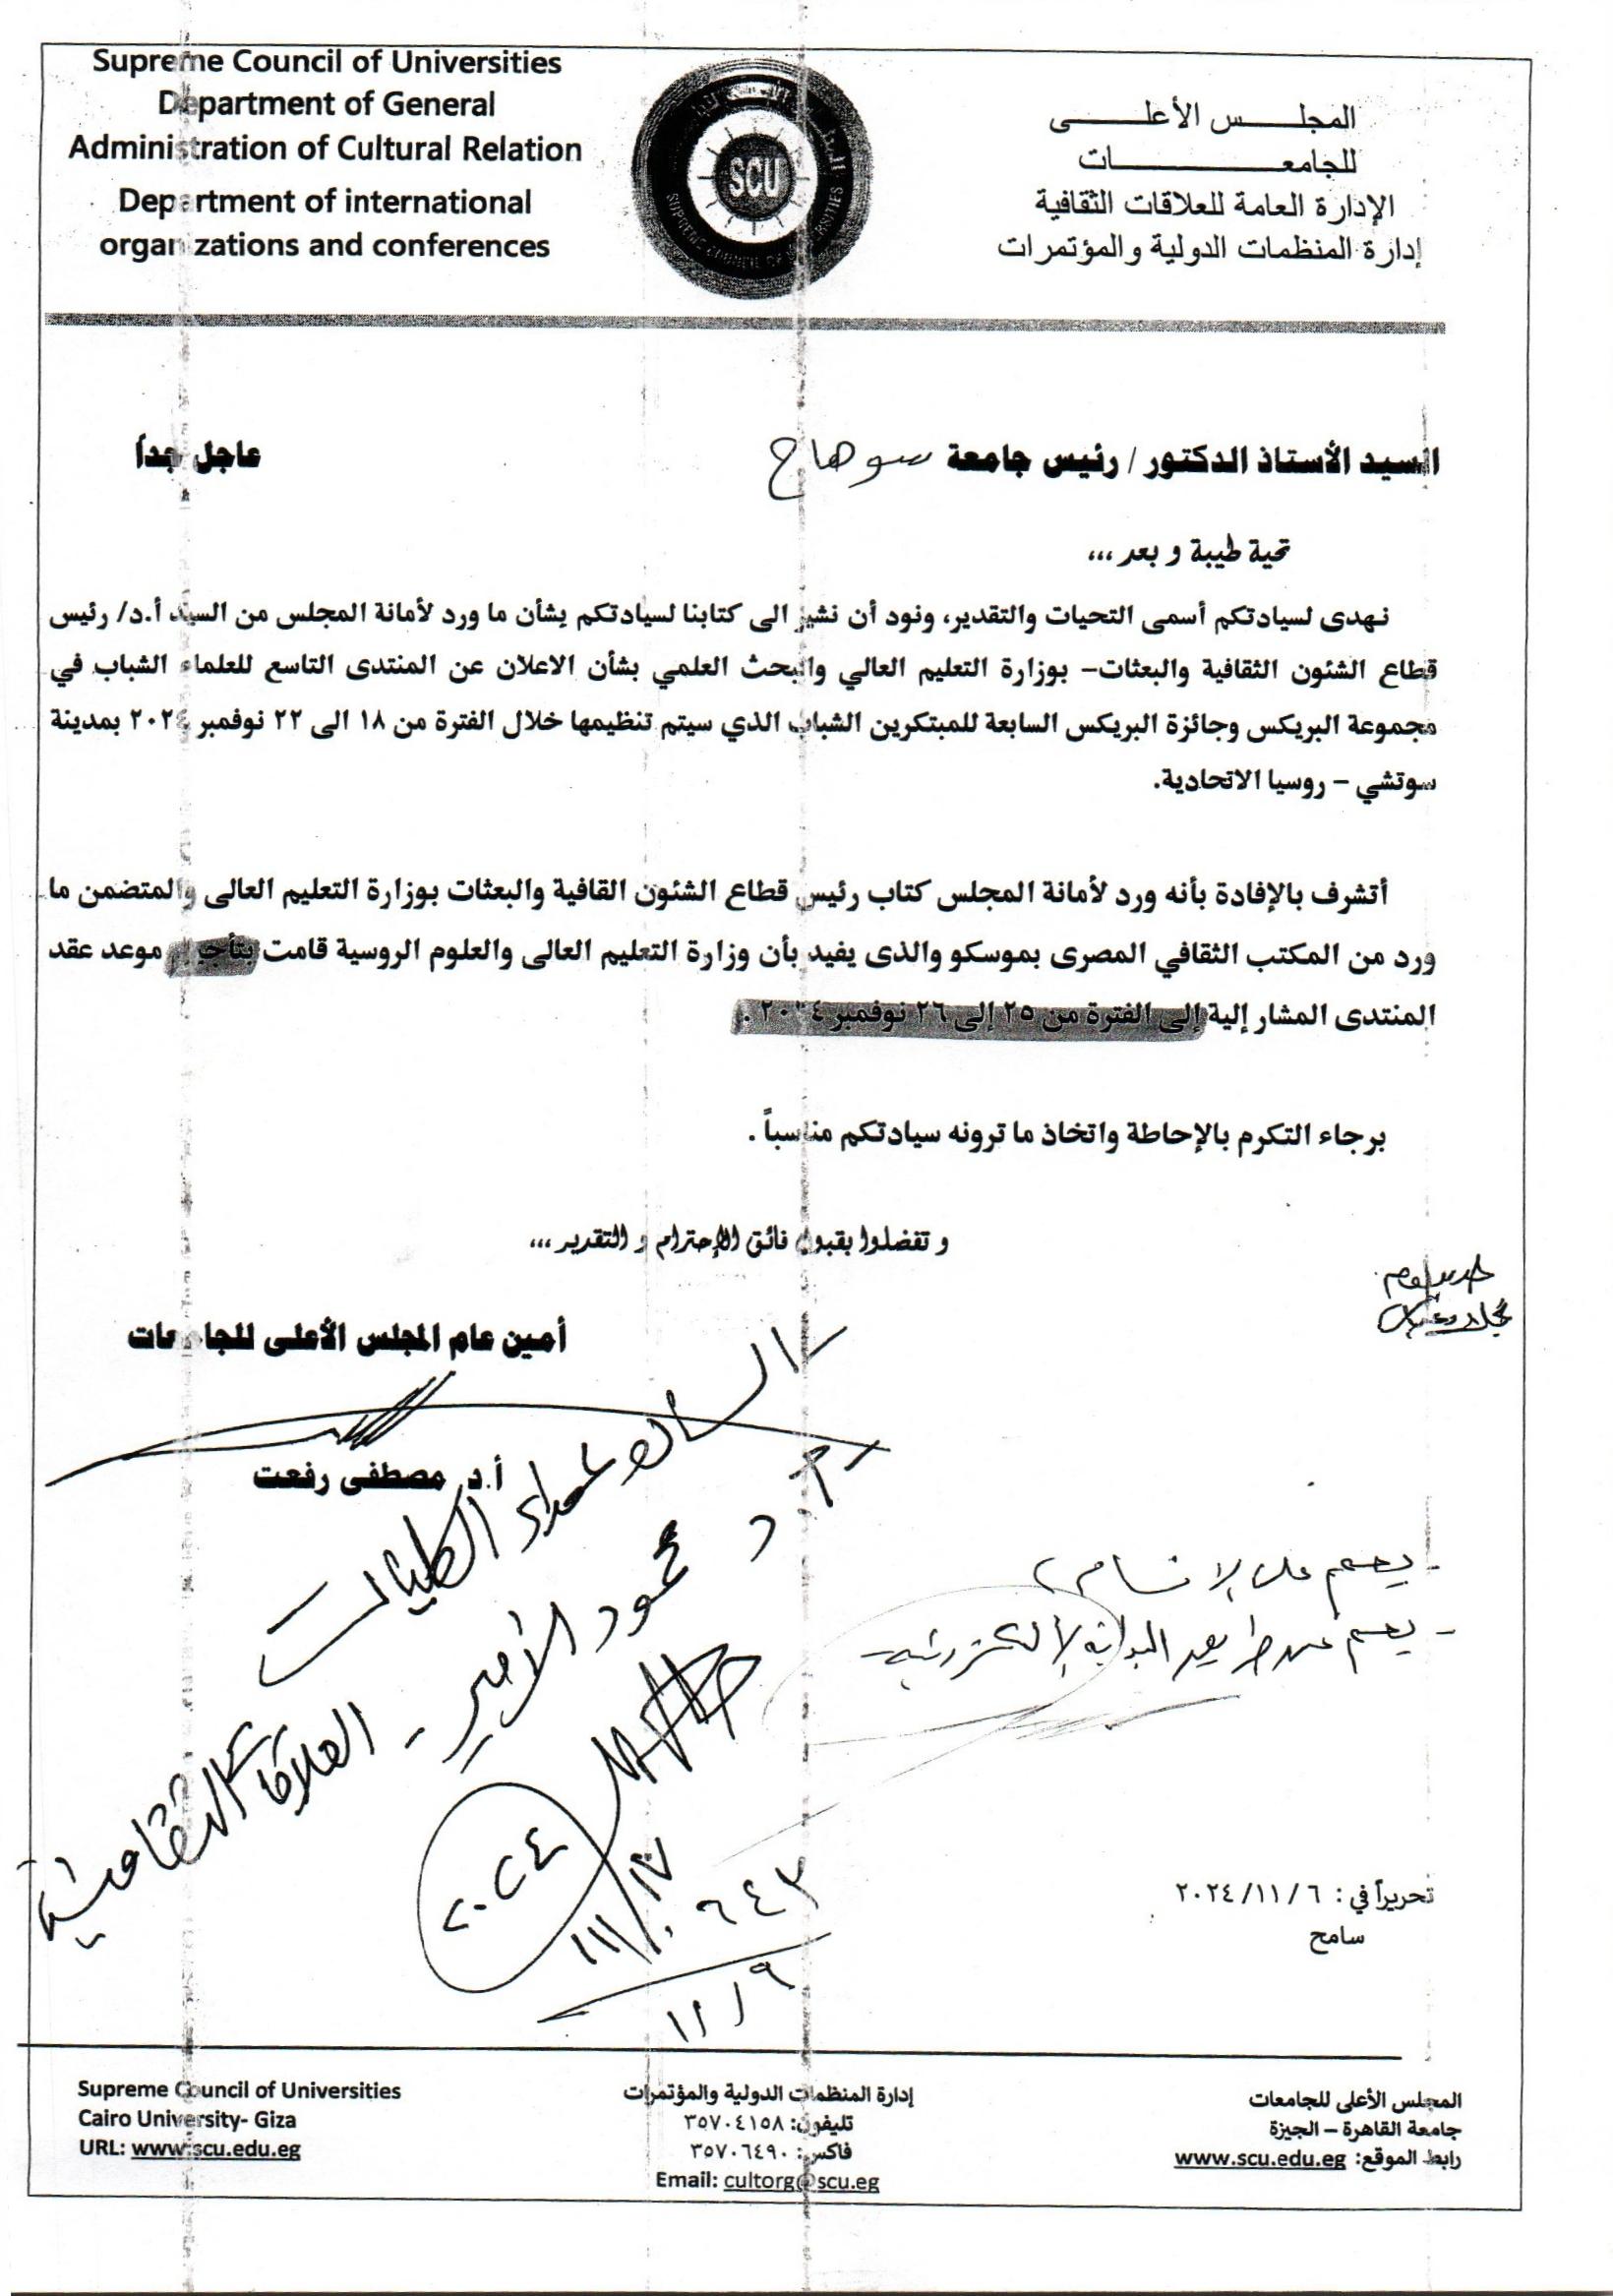 Supreme Council of Universities
Department of General
Administration of Cultural Relation
Department of international
organizations and conferences
SCU
المجلس الأعلى
للجامعات
الإدارة العامة للعلاقات الثقافية
إدارة المنظمات الدولية والمؤتمرات
السيد الأستاذ الدكتور / رئيس جامعة سوهاج
عاجل جداً
تحية طيبة و بعد ...
نهدى لسيادتكم أسمى التحيات والتقدير، ونود أن نشير الى كتابنا لسيادتكم بشأن ما ورد لأمانة المجلس من السيد أ.د/ رئيس
قطاع الشئون الثقافية والبعثات– بوزارة التعليم العالي والبحث العلمي بشأن الاعلان عن المنتدى التاسع للعلماء الشباب في
مجموعة البريكس وجائزة البريكس السابعة للمبتكرين الشباب الذي سيتم تنظيمها خلال الفترة من ١٨ الى ٢٢ نوفمبر ٢٠٢٤ بمدينة
سوتشي – روسيا الاتحادية.
أتشرف بالإفادة بأنه ورد لأمانة المجلس كتاب رئيس قطاع الشئون القافية والبعثات بوزارة التعليم العالى والمتضمن ما
ورد من المكتب الثقافي المصرى بموسكو والذى يفيد بأن وزارة التعليم العالى والعلوم الروسية قامت بتأجيل موعد عقد
المنتدى المشار إلية إلى الفترة من ٢٥ إلى ٢٦ نوفمبر ٢٠٢٤ .
برجاء التكرم بالإحاطة واتخاذ ما ترونه سيادتكم مناسباً .
و تفضلوا بقبول فائق الإحترام و التقدير ...
أمين عام المجلس الأعلى للجامعات
أ.د. مصطفى رفعت
السادة عمداء الكليات
أ.د محمود الأمير - العلاقات الثقافية
- يعمم على الأقسام
- يعمم عن طريق البوابة الإلكترونية
٢٠٢٤
١١/١٧
٦٤٣
١١/٩
تحريراً في : ٦ /١١/ ٢٠٢٤
سامح
Supreme Council of Universities
Cairo University- Giza
URL: www.scu.edu.eg
إدارة المنظمات الدولية والمؤتمرات
تليفون: ٣٥٧٠٤١٥٨
فاكس: ٣٥٧٠٦٤٩٠
Email: cultorg@scu.eg
المجلس الأعلى للجامعات
جامعة القاهرة – الجيزة
رابط الموقع: www.scu.edu.eg